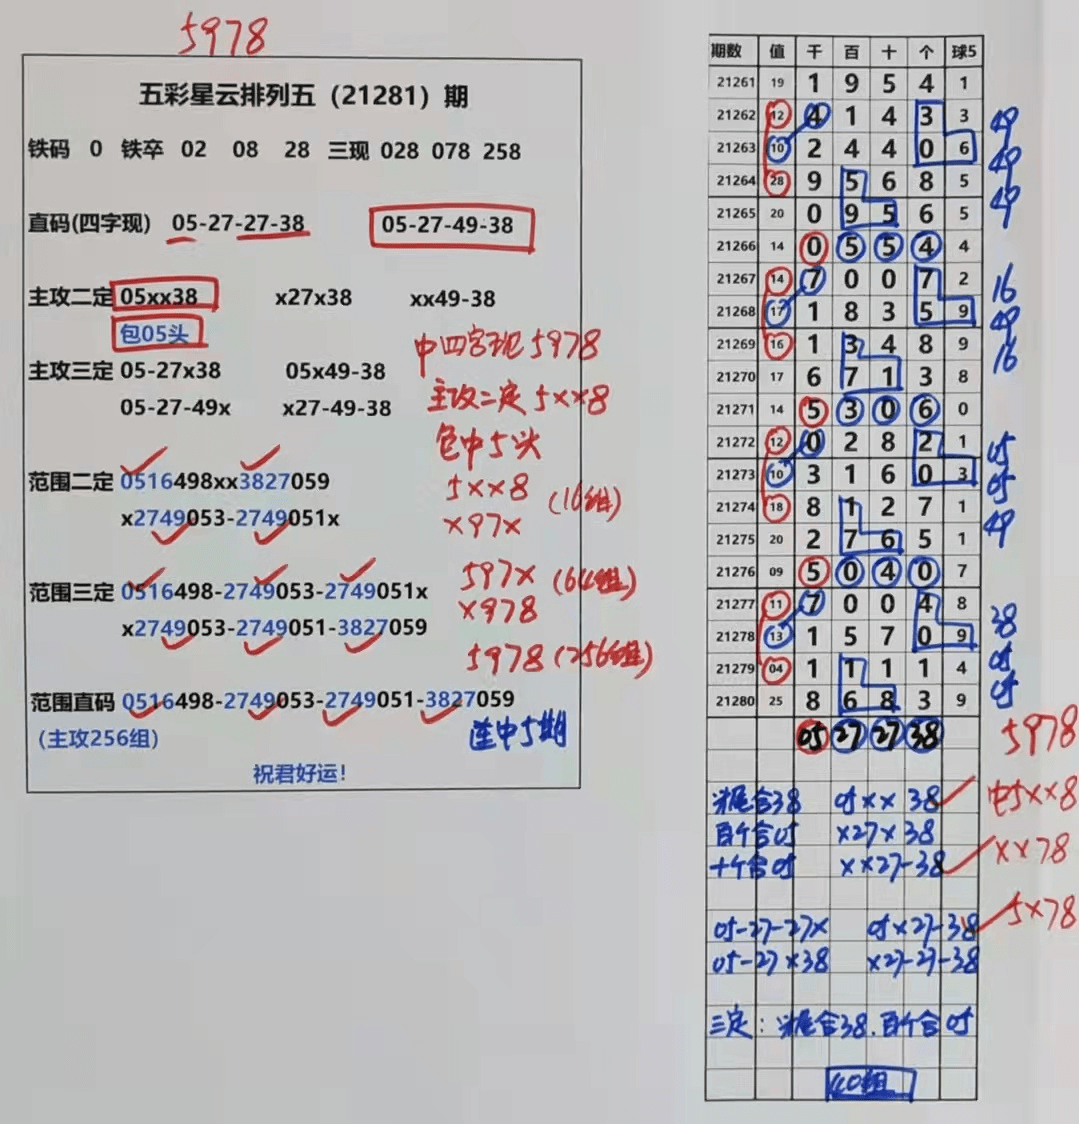 5978
五彩星云排列五（21281）期
铁码 0 铁卒 02 08 28 三现 028 078 258
直码(四字现) 05-27-27-38 05-27-49-38
主攻二定 05xx38 x27x38 xx49-38
包05头
中四字现 5978
主攻三定 05-27x38 05x49-38
主攻二定 5××8
05-27-49x x27-49-38
包中5头
范围二定 0516498xx3827059
5××8 (16组)
x2749053-2749051x
×97×
范围三定 0516498-2749053-2749051x
597× (64组)
x2749053-2749051-3827059
×978
5978 (256组)
范围直码 0516498-2749053-2749051-3827059
(主攻256组)
连中5期
祝君好运!
期数 值 千 百 十 个 球5
21261 19 1 9 5 4 1
21262 12 4 1 4 3 3 49
21263 10 2 4 4 0 6 49
21264 28 9 5 6 8 5 49
21265 20 0 9 5 6 5
21266 14 0 5 5 4 4
21267 14 7 0 0 7 2 16
21268 17 1 8 3 5 9 49
21269 16 1 3 4 8 9 16
21270 17 6 7 1 3 8
21271 14 5 3 0 6 0
21272 12 0 2 8 2 1 05
21273 10 3 1 6 0 3 05
21274 18 8 1 2 7 1 49
21275 20 2 7 6 5 1
21276 09 5 0 4 0 7
21277 11 7 0 0 4 8 38
21278 13 1 5 7 0 9 05
21279 04 1 1 1 1 4 05
21280 25 8 6 8 3 9
05 27 27 38 5978
尾合38 05×× 38 中5××8
百个合05 ×27×38
十个合05 ××27-38 ××78
05-27-27× 05×27-38 5×78
05-27×38 ×27-27-38
三定: 尾合38.百个合05
40组